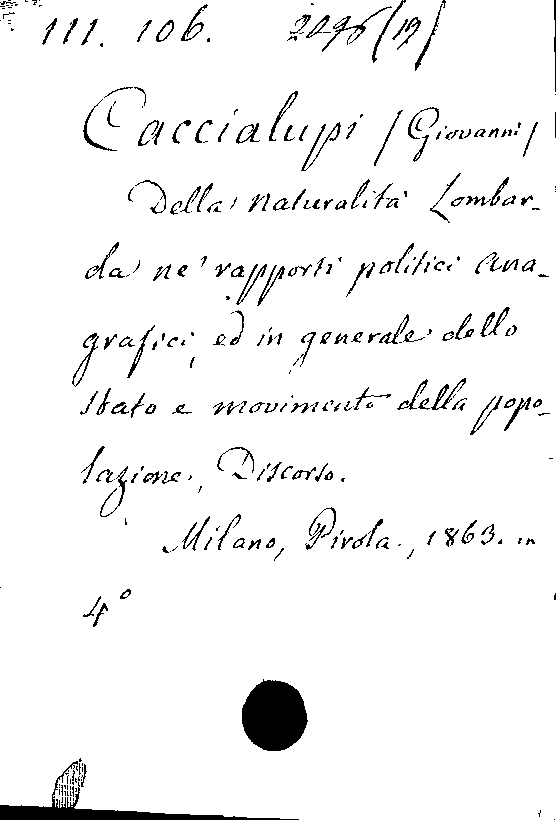 111. 106. 2096(19)
Caccialupi / Giovanni /
Della naturalità Lombar-
da ne' rapporti politici ana-
grafici, ed in generale dello
stato e movimento della popo-
lazione, Discorso.
Milano, Pirola, 1863. in
4°